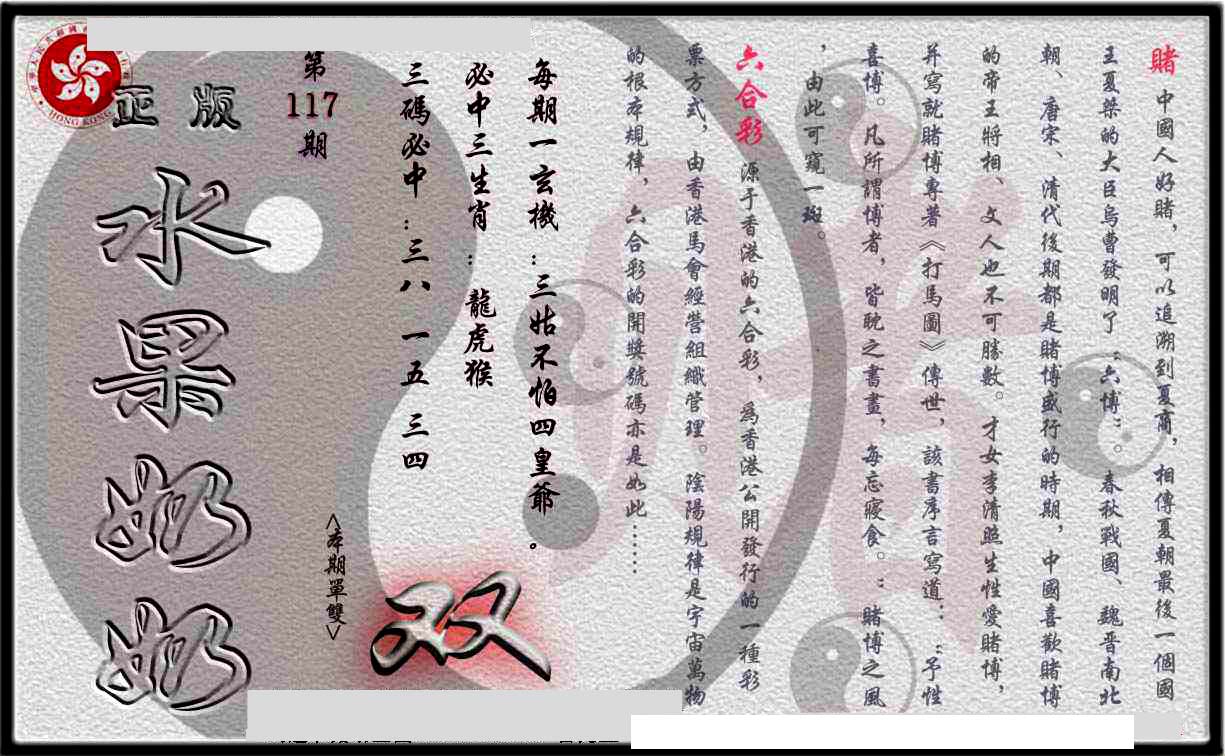 賭 中國人好賭，可以追溯到夏商，相傳夏朝最後一個國
王夏桀的大臣烏曹發明了“六博” 春秋戰國、魏晉南北
朝、唐宋、清代後期都是賭博盛行的時期，中國喜歡賭博
的帝王將相、文人也不可勝數。才女李清照生性愛賭博，
并寫就賭博專著《打馬圖》傳世，該書序言寫道：“予性
喜博。凡所謂博者，皆耽之書畫，每忘寢食。”賭博之風
，由此可窺一斑。
六合彩 源于香港的六合彩，為香港公開發行的一種彩
票方式，由香港馬會經營組織管理。陰陽規律是宇宙萬物
的根本規律，六合彩的開獎號碼亦是如此……
每期一玄機：三姑不怕四皇爺。
必中三生肖：龍虎猴
三碼必中：三八 一五 三四
<本期單雙>
双
第117期
正版
水果奶奶
HONG KONG